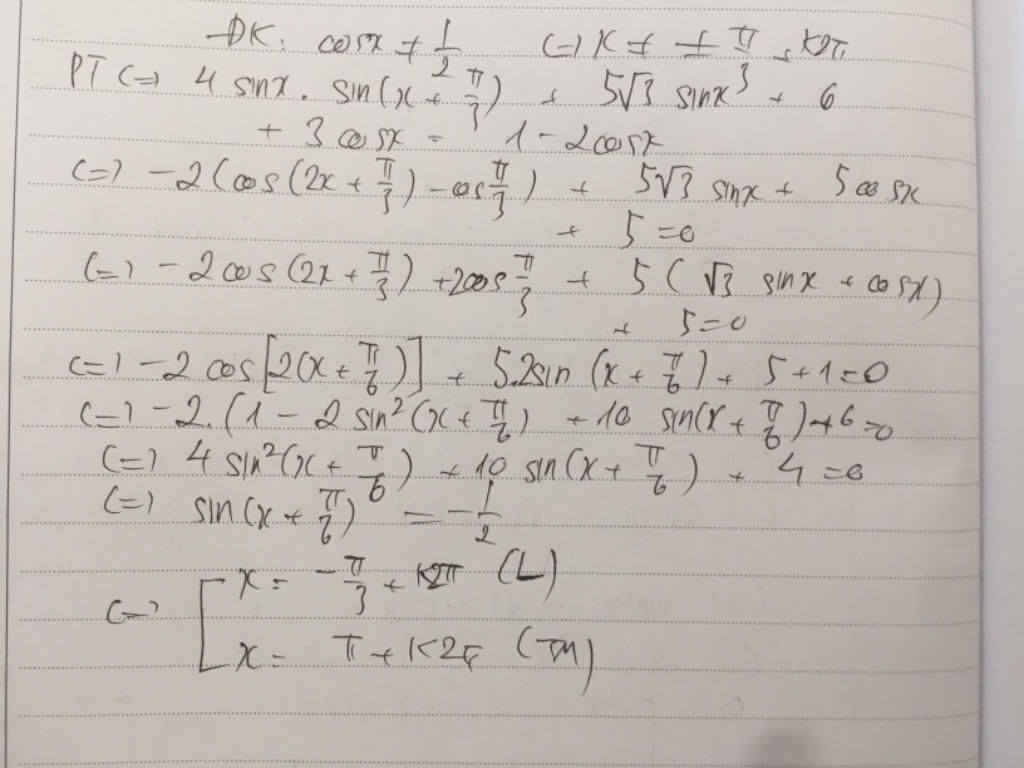 ĐK: cosx ≠ 1/2 (=) x ≠ ± π/3 + k2π
PT (=) 4 sinx . sin(x + π/3) + 5√3 sinx + 6
+ 3 cosx = 1 - 2cosx
(=) -2(cos(2x + π/3) - cos π/3) + 5√3 sinx + 5 cosx
+ 5 = 0
(=) -2cos(2x + π/3) + 2cos π/3 + 5(√3 sinx + cosx)
+ 5 = 0
(=) -2 cos[2(x + π/6)] + 5.2sin(x + π/6) + 5 + 1 = 0
(=) -2.(1 - 2 sin²(x + π/6) + 10 sin(x + π/6) + 6 = 0
(=) 4 sin²(x + π/6) + 10 sin(x + π/6) + 4 = 0
(=) sin(x + π/6) = -1/2
(=) [ x = -π/3 + k2π (L)
x = π + k2π (TM)